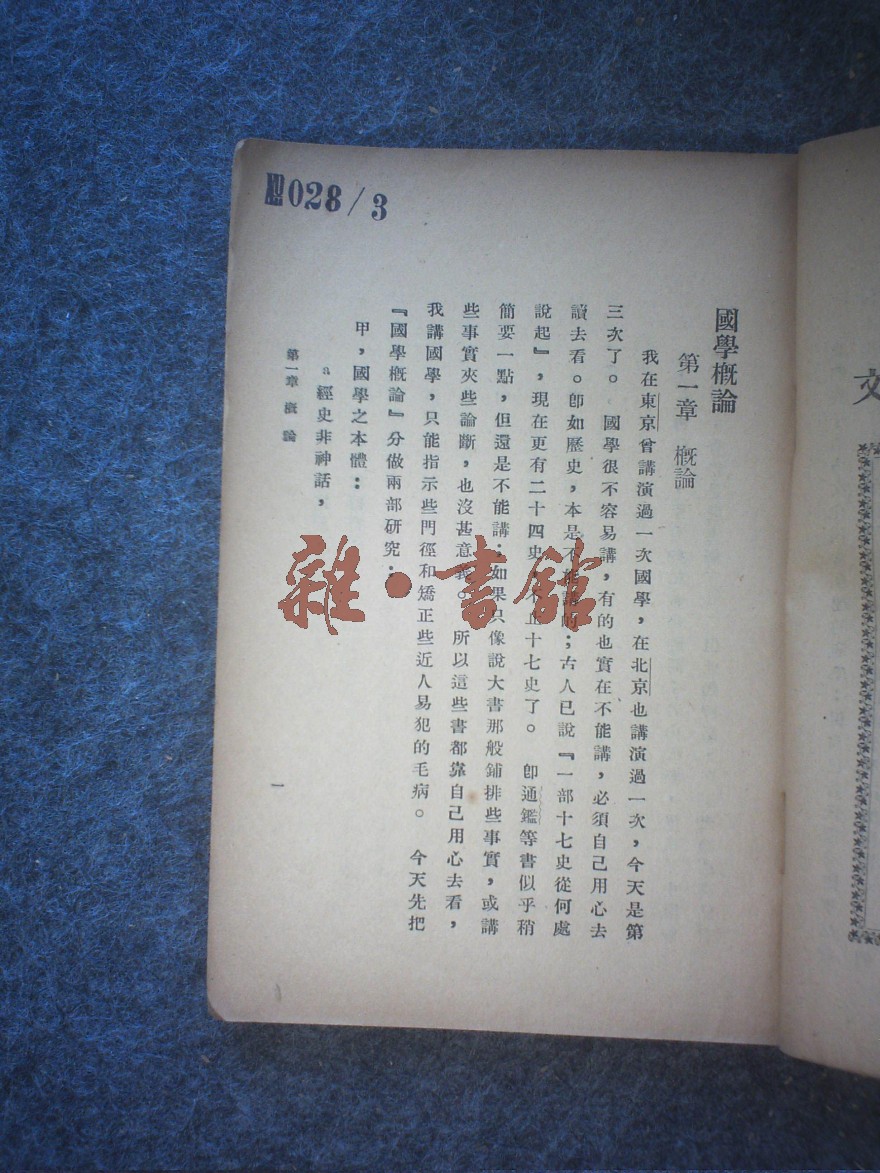 №028/3
國學概論
第一章 概論
我在東京曾講演過一次國學，在北京也講演過一次，今天是第
三次了。國學很不容易講，有的也實在不能講，必須自己用心去
讀去看。卽如歷史，本是不能講的；古人已說『一部十七史從何處
說起』，現在更有二十四史，不止十七史了。卽通鑑等書似乎稍
簡要一點，但還是不能講；如果只像說大書那般鋪排些事實，或講
些事實夾些論斷，也沒甚意義。所以這些書都靠自己用心去看，
我講國學，只能指示些門徑和矯正些近人易犯的毛病。今天先把
『國學概論』分做兩部研究：
甲，國學之本體：
a經史非神話，
第一章 概論
一
雜·書館
文